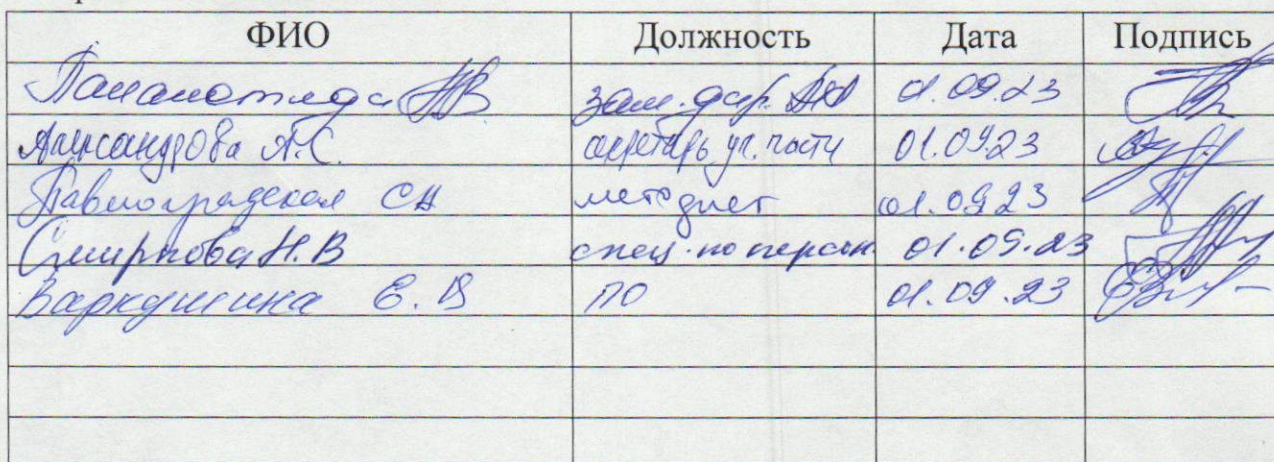 ФИО Должность Дата Подпись
зам. дир. 01.09.23
Александрова А.С. секретарь уч. части 01.09.23
Павлоградская СН методист 01.09.23
Смирнова Н.В спец. по персон. 01.09.23
Варкушина Е.В ПО 01.09.23